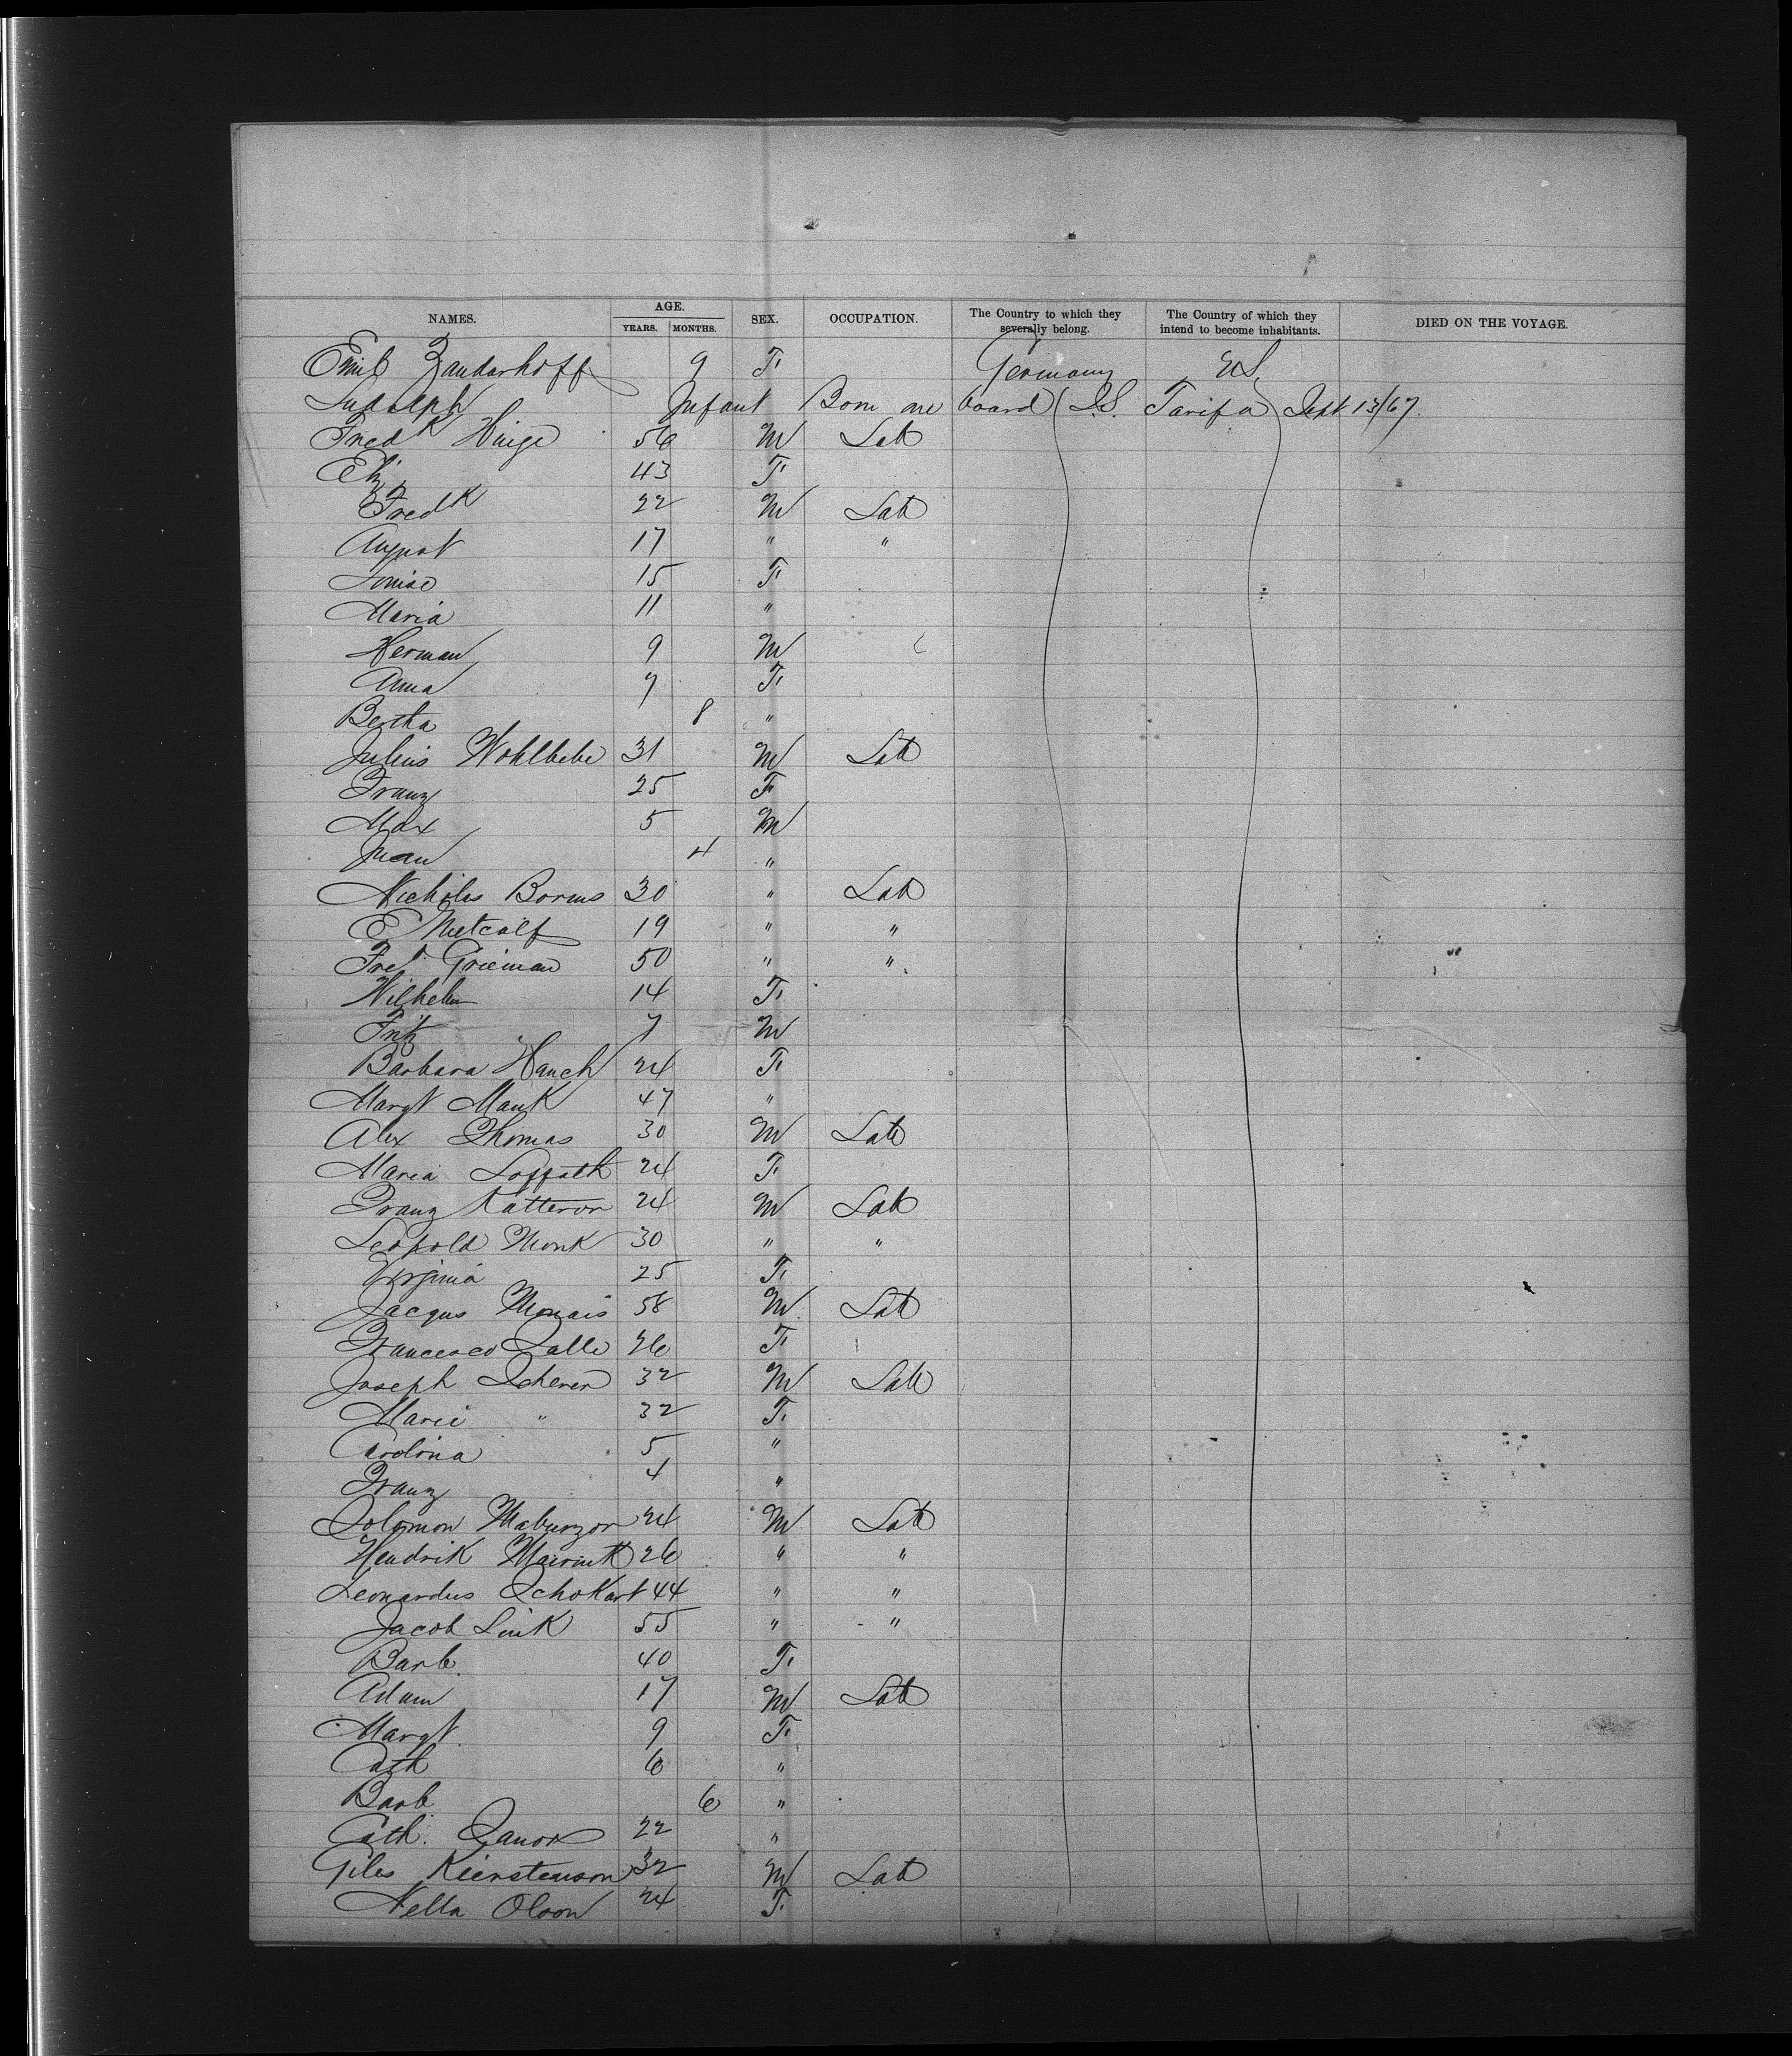 NAMES. AGE. YEARS. MONTHS. SEX. OCCUPATION. The Country to which they severally belong. The Country of which they intend to become inhabitants. DIED ON THE VOYAGE.
Emil Zandarhoff 9 F Germany U.S.
Ludolph Infant Born on board S.S. Tarifa Sept 13/67.
Fredk Huige 56 M Lab
Eliz 43 F
Fredk 22 M Lab
August 17 " "
Louise 15 F
Maria 11 "
Herman 9 M
Anna 7 F
Bertha 8 "
Julius Wohlbebe 31 M Lab
Franz 25 F
Max 5 M
Juan 4 "
Nicholas Borms 30 " Lab
E Metcalf 19 " "
Fred Grieman 50 " "
Wilhelm 14 F
Fritz 7 M
Barbara Hauch 24 F
Margt Mauk 47 "
Alex Thomas 30 M Lab
Maria Loffath 24 F
Franz Katteror 24 M Lab
Leopold Monk 30 " "
Virginia 25 F
Jacqus Monais 58 M Lab
Francesco Salle 26 F
Joseph Scherer 32 M Lab
Marie " 32 F
Carolina 5 "
Franz 4 "
Solomon Maburzor 24 M Lab
Hendrik Mairink 26 " "
Leonardus Schokart 44 " "
Jacob Link 55 " "
Barb. 40 F
Adam 17 M Lab
Margt. 9 F
Cath 6 "
Barb 6 "
Cath. 22 "
Giles Kierstenson 32 M Lab
Nella Olson 24 F